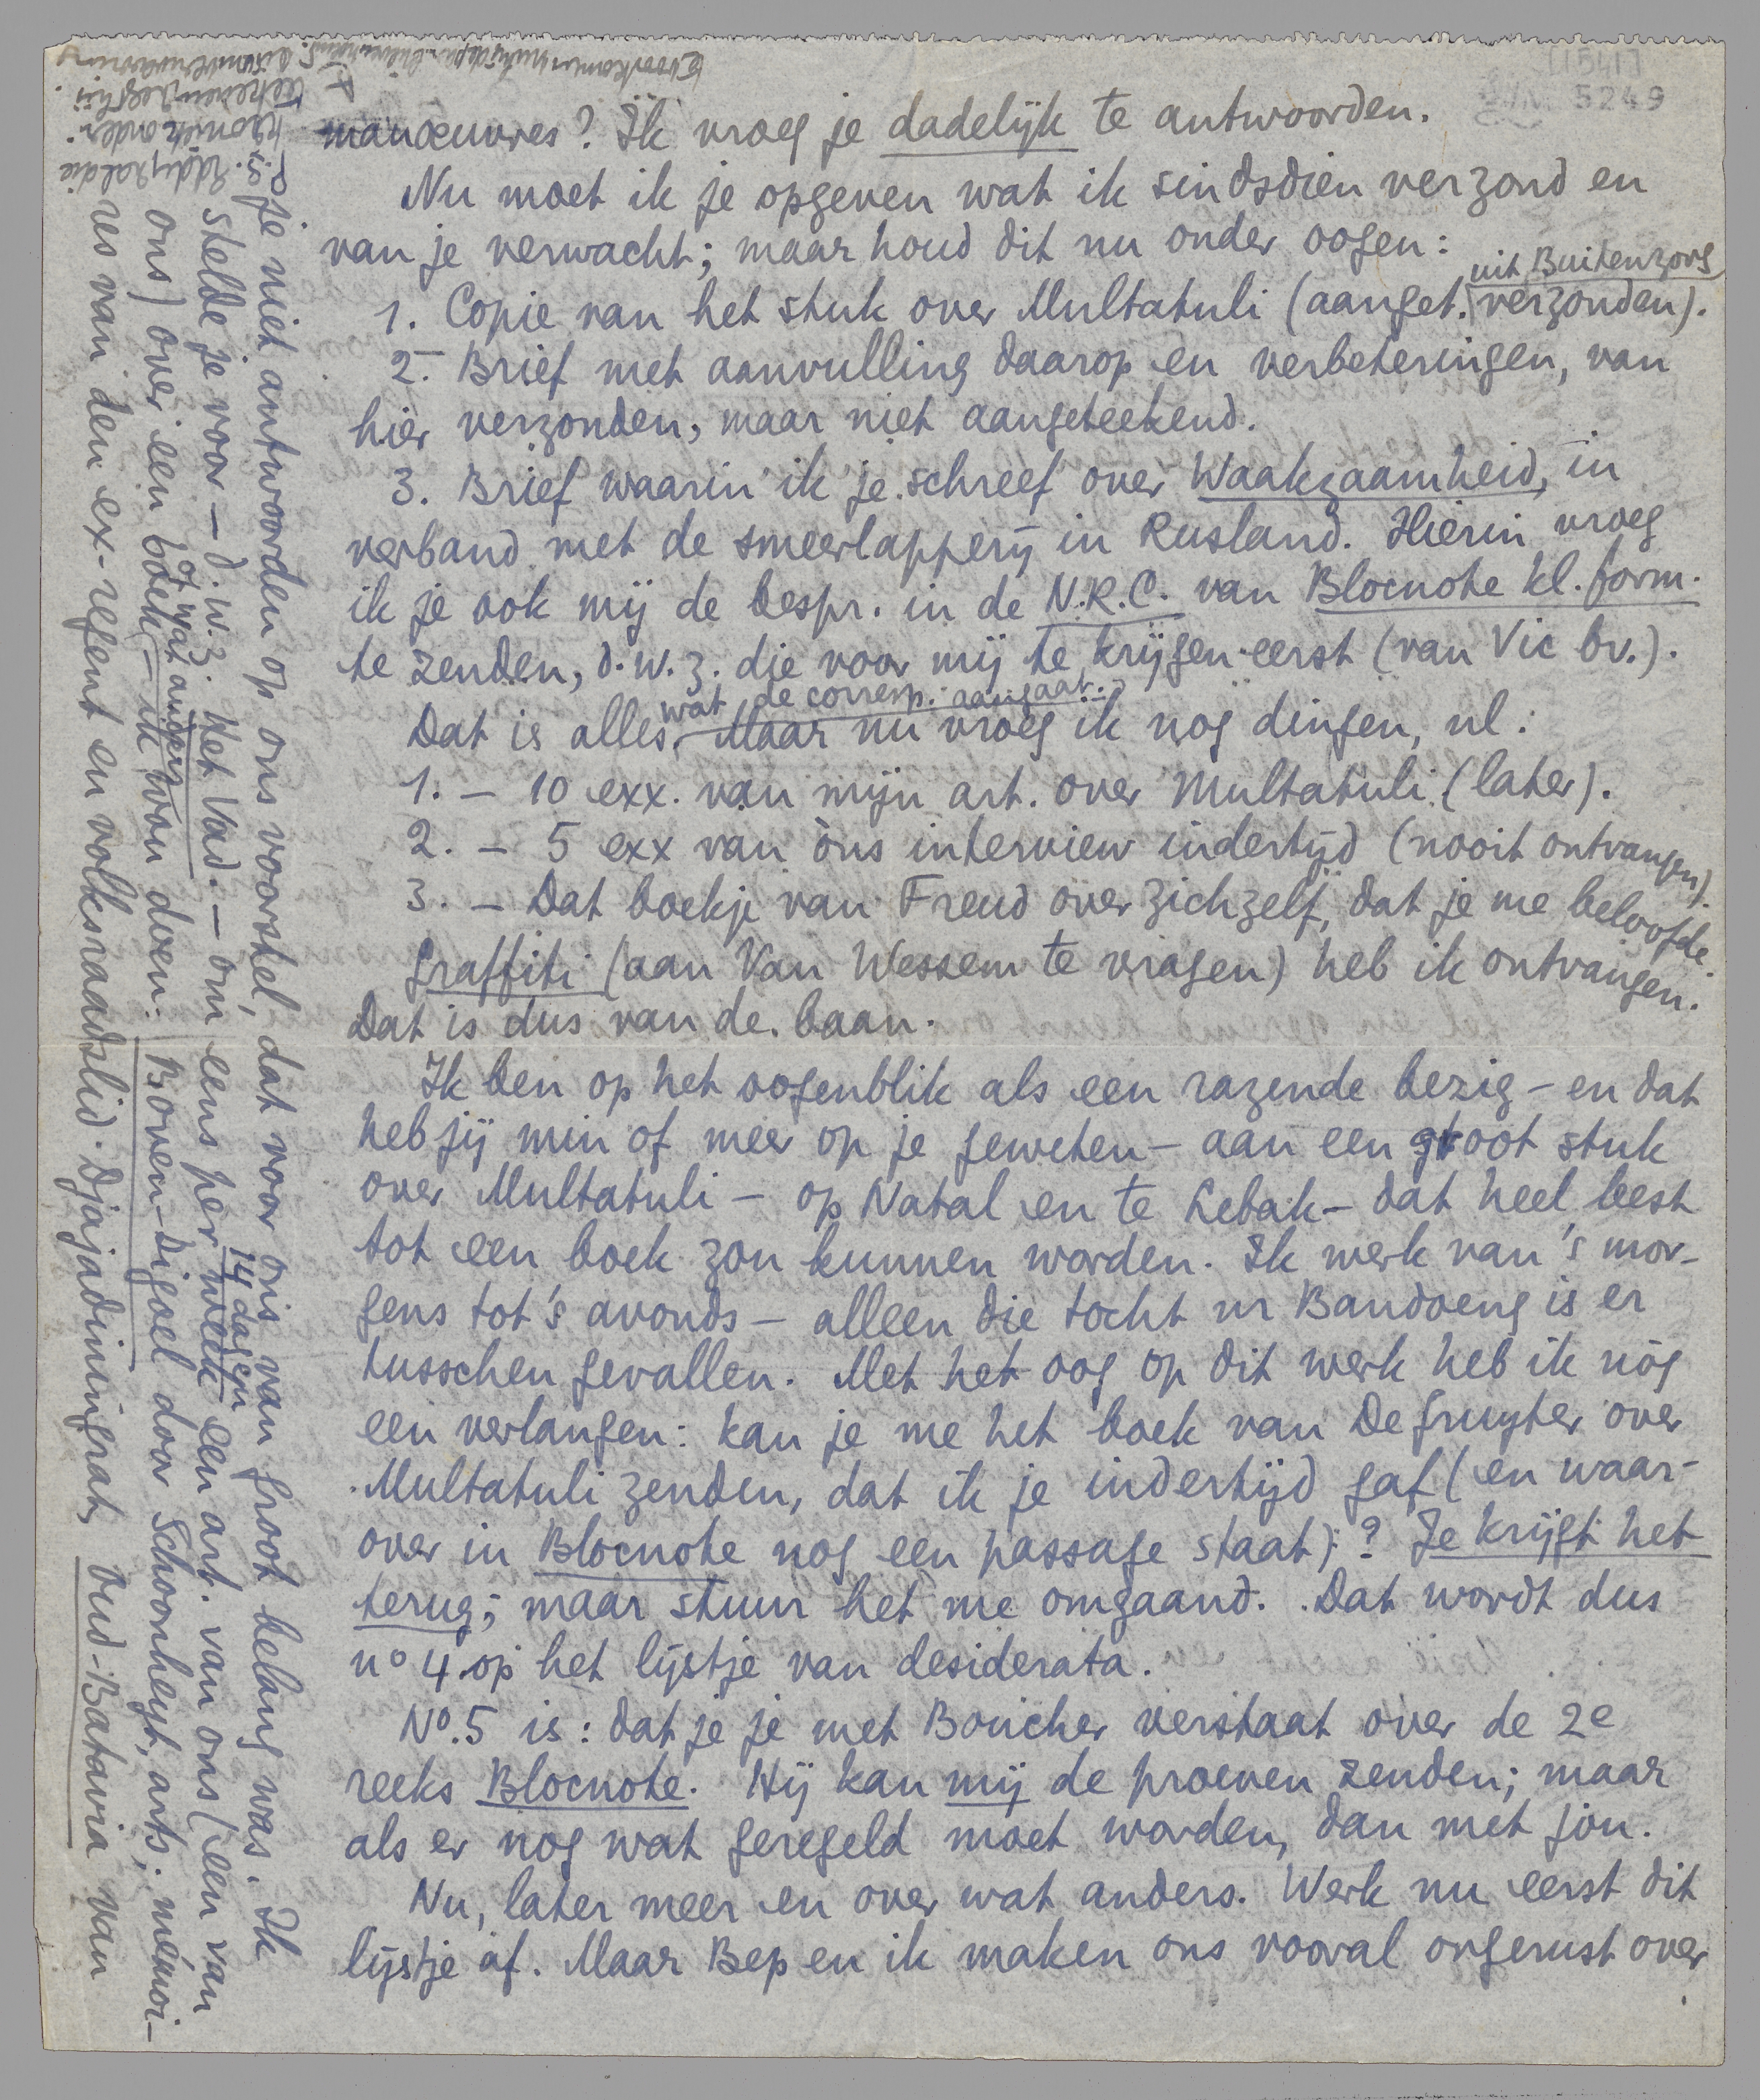 [1541]
5249
manœuvres? Ik vroeg je dadelijk te antwoorden.
Nu moet ik je opgeven wat ik sindsdien verzond en
van je verwacht; maar houd dit nu onder oogen:
1. Copie van het stuk over Multatuli (aanget. uit Buitenzorg verzonden).
2. Brief met aanvulling daarop en verbeteringen, van
hier verzonden, maar niet aangeteekend.
3. Brief waarin ik je schreef over Waakzaamheid, in
verband met de smeerlapperij in Rusland. Hierin vroeg
ik je ook mij de bespr. in de N.R.C. van Blocnote kl. form.
te zenden, d.w.z. die voor mij te krijgen eerst (van Vic bv.).
Dat is alles, wat de corresp. aangaat. Maar nu vroeg ik nog dingen, nl:
1. – 10 exx. van mijn art. over Multatuli (later).
2. – 5 exx van òns interview indertijd (nooit ontvangen).
3. – Dat boekje van Freud over zichzelf, dat je me beloofde.
Graffiti (aan Van Wessem te vragen) heb ik ontvangen.
Dat is dus van de baan.
Ik ben op het oogenblik als een razende bezig – en dat
heb jij min of meer op je geweten – aan een groot stuk
over Multatuli – op Natal en te Lebak – dat heel best
tot een boek zou kunnen worden. Ik werk van 's mor-
gens tot 's avonds – alleen die tocht nr Bandoeng is er
tusschen gevallen. Met het oog op dit werk heb ik nòg
een verlangen: kan je me het boek van De Gruyter over
Multatuli zenden, dat ik je indertijd gaf (en waar-
over in Blocnote nog een passage staat)? Je krijgt het
terug; maar stuur het me omgaand. Dat wordt dus
no 4 op het lijstje van desiderata.
No. 5 is: dat je je met Boucher verstaat over de 2e
reeks Blocnote. Hij kan mij de proeven zenden; maar
als er nog wat geregeld moet worden, dan met jou.
Nu, later meer en over wat anders. Werk nu eerst dit
lijstje af. Maar Bep en ik maken ons vooral ongerust over
je niet antwoorden op ons voorstel, dat voor ons van groot belang was. Ik
stelde je voor – d.w.z. het Vad. – om eens per week 14 dagen een art. van ons (een van
ons) over een boek – of wat anders – ik zou doen: Boven-Digoel door Schoonheyt, arts; memoi-
res van den ex-regent en volksraadslid Djajadiningrat, Oud-Batavia van